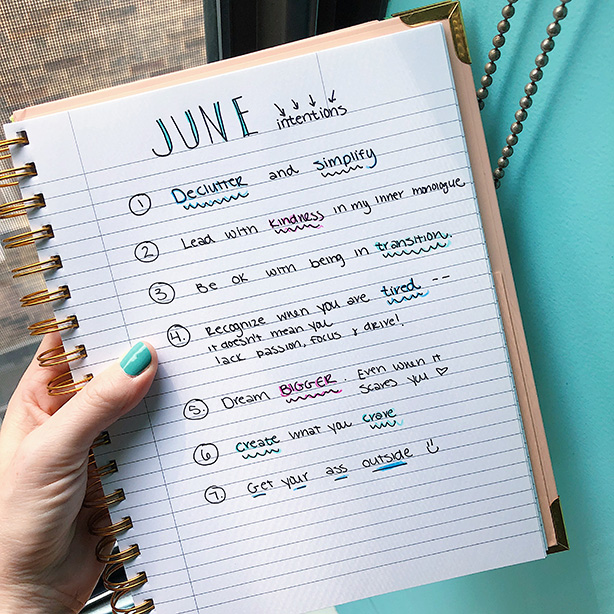 JUNE intentions
1 Declutter and simplify
2. Lead with kindness in my inner monologue
3 Be ok with being in transition.
4. Recognize when you are tired --
it doesn't mean you
lack passion, focus & drive!
5. Dream BIGGER. Even when it
scares you ♡
6 create what you crave
7. Get your ass outside